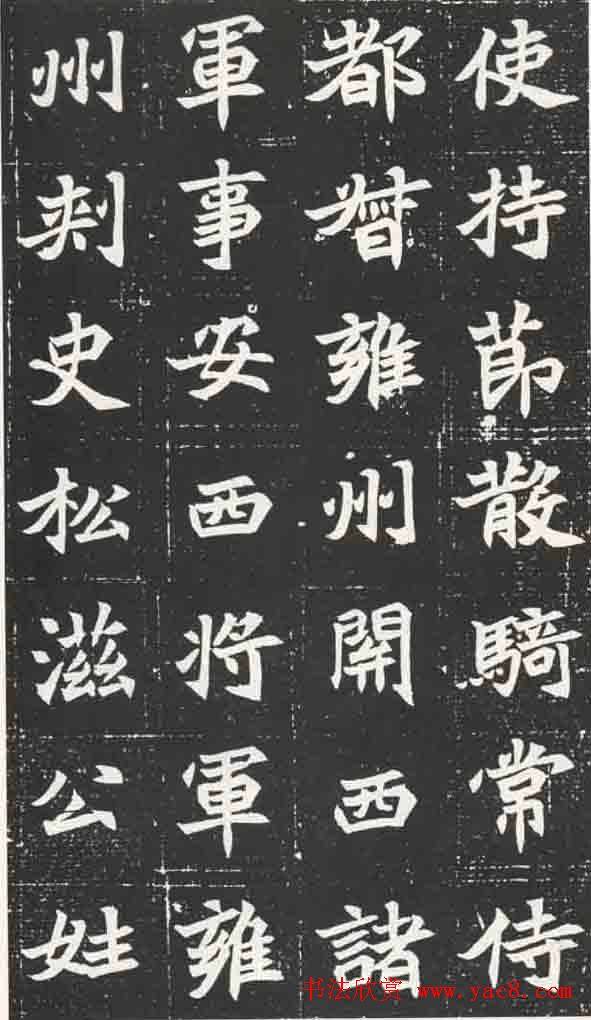 使持節散騎常侍
都督雍州關西諸
軍事安西將軍雍
州刺史松滋公姓
书法欣赏 www.yac8.com